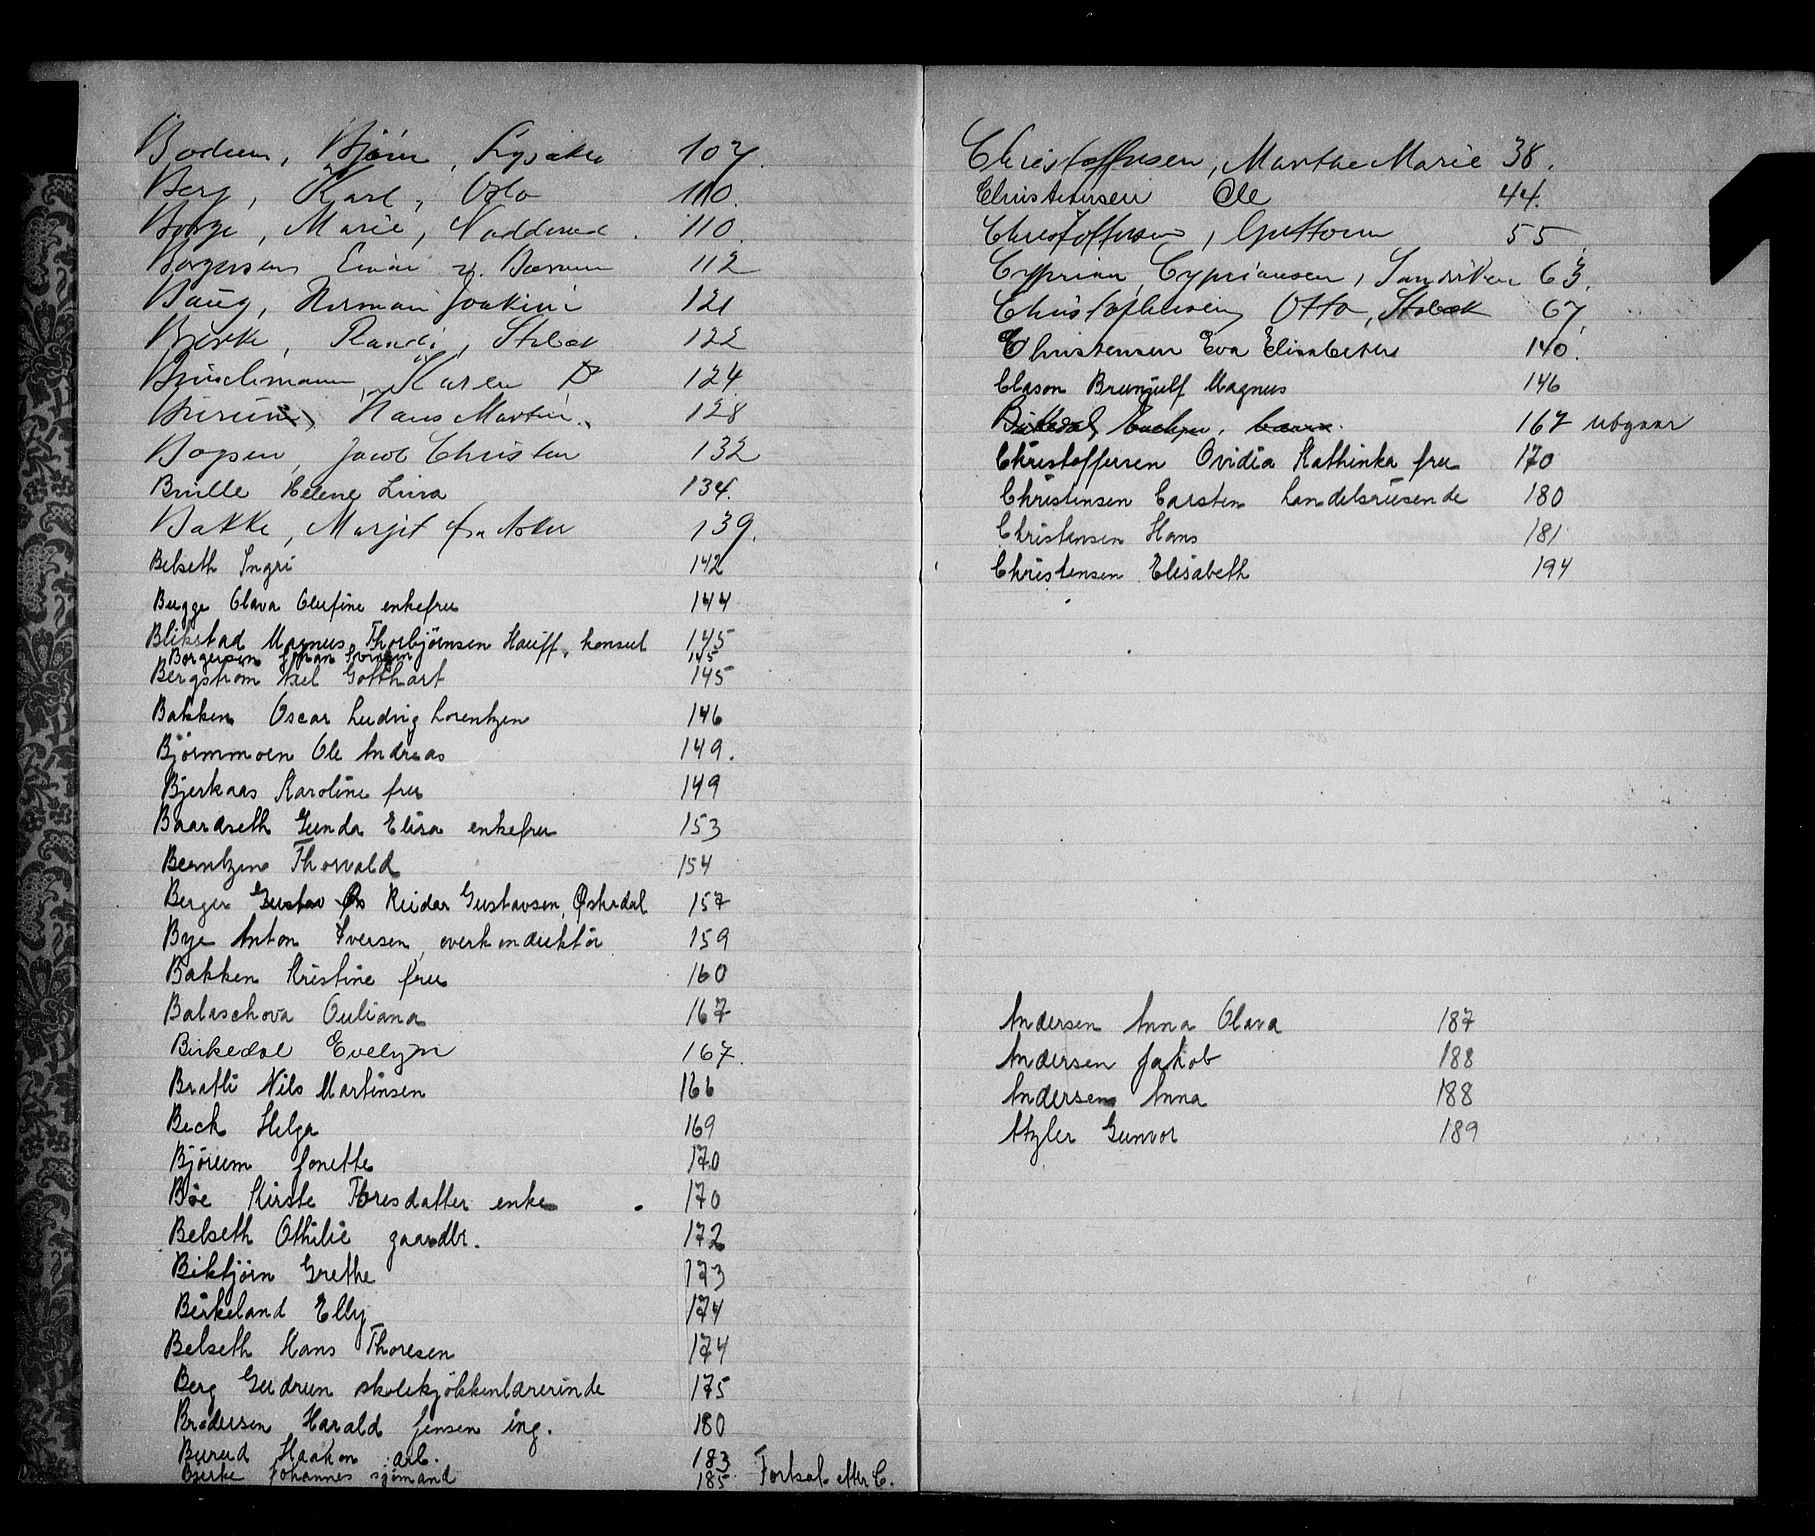 Bjørn, Lysaker 107.
Berg, Karl, Oslo 110.
Borge, Marie, Nadderud. 110.
Borgersen v. Bærum 112
Baug, Herman Joakim 121
Bjerke, Randi, Stabæk 122
Buschmann, Karen 124
Hans Martin. 128
Jacob Christen 132
Brille Helene Lina 134.
Bakke, Margit fra Asker 139.
Belseth Ingri 142
Bugge Olava Olufine enkefru 144
Blikstad Magnus Thorbjörnsen Hauff, konsul 145
Borgersen Johan 145
Bergström Axel Gotthart 145
Bakken Oscar Ludvig Lorentzen 146
Björnmoen Ole Andreas 149.
Bjerkaas Karoline fru 149
Baardseth Gunda Elisa enkefru 153
Berntzen Thorvald 154
Berger Gustav Reidar Gustavsen, Østerdal 157
Bye Anton Iversen, overkonduktör 159
Bakken Kristine fru 160
Balaschova Juliana 167
Birkedal Evelyn 167.
Bratli Nils Martinsen 166
Beck Helga 169
Björum Jonette 170
Böe Kirste Toresdatter enke 170
Belseth Othilie gaardbr. 172
Bikbjörn Grethe 173
Birkeland Elly 174
Belseth Hans Thoresen 174
Berg Gudrun skolekjökkenlærerinde 175
Brodersen Harald Jensen ing. 180
Burud Haakon arb. 183
Bjerke Johannes sjömand 185 Fortsat efter C.
Christoffersen, Marthe Marie 38.
Christensen Ole 44.
Christoffersen, Guttorm 55.
Cyprian Cypriansen, Sandviken 63.
Christophersen Otto, Stabæk 67.
Christensen Eva Elisabeth 140.
Clason Brunjulf Magnus 146
Birkedal Evelyn, barn. 167 utgaar
Christoffersen Ovidia Kathinka fru 170
Christensen Carsten handelsreisende 180
Christensen Hans 181
Christensen Elisabeth 194
Andersen Anna Olava 187
Andersen Jakob 188
Andersen Anna 188
Atzler Gunvor 189